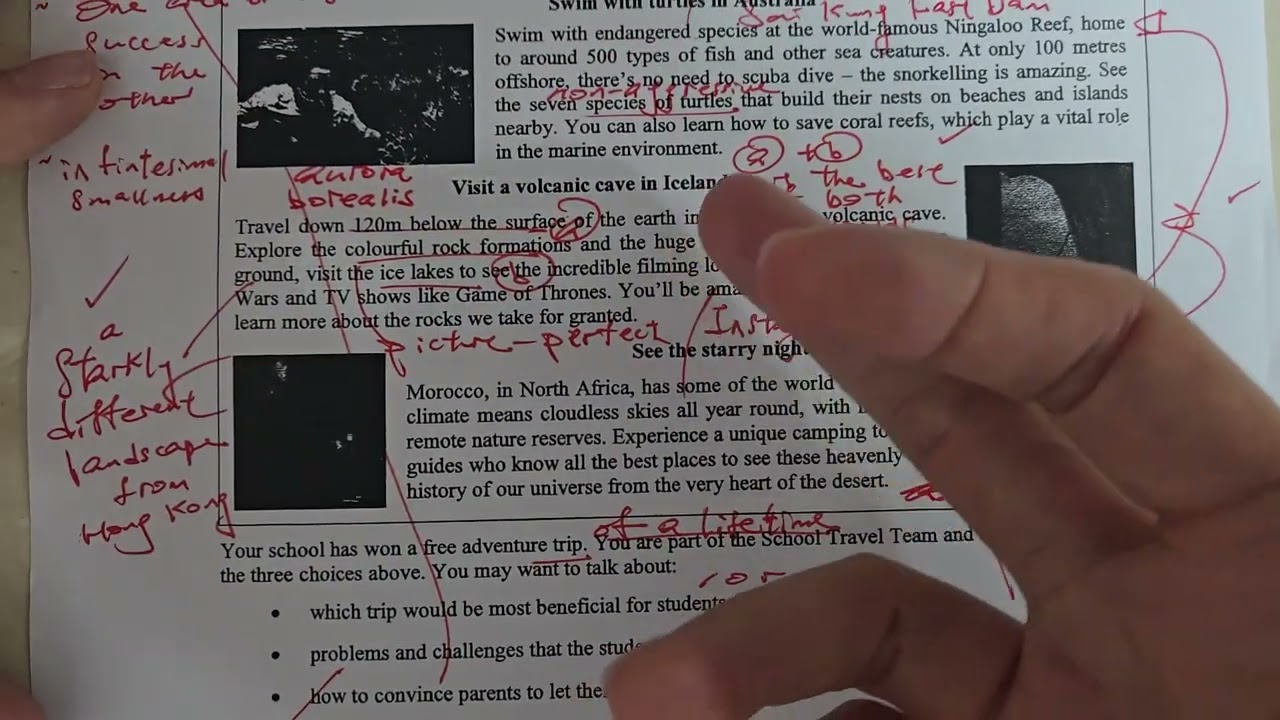 ~ One area of
success
in the
other
~ infintesimal
smallness
Swim with turtles in Australia
Sai Kung East Dam
Swim with endangered species at the world-famous Ningaloo Reef, home
to around 500 types of fish and other sea creatures. At only 100 metres
offshore, there's no need to scuba dive – the snorkelling is amazing. See
non-aggressive
the seven species of turtles that build their nests on beaches and islands
nearby. You can also learn how to save coral reefs, which play a vital role
in the marine environment.
a + b
the best
both
aurora
borealis
Visit a volcanic cave in Iceland
Travel down 120m below the surface of the earth in volcanic cave.
a
Explore the colourful rock formations and the huge
ground, visit the ice lakes to see the incredible filming
b
Wars and TV shows like Game of Thrones. You'll be
learn more about the rocks we take for granted.
picture-perfect
a
starkly
different
landscape
from
Hong Kong
See the starry
Morocco, in North Africa, has some of the world
climate means cloudless skies all year round, with
remote nature reserves. Experience a unique camping
guides who know all the best places to see these heavenly
history of our universe from the very heart of the desert.
of a lifetime
Your school has won a free adventure trip. You are part of the School Travel Team and
the three choices above. You may want to talk about:
• which trip would be most beneficial for students
• problems and challenges that the
• how to convince parents to let